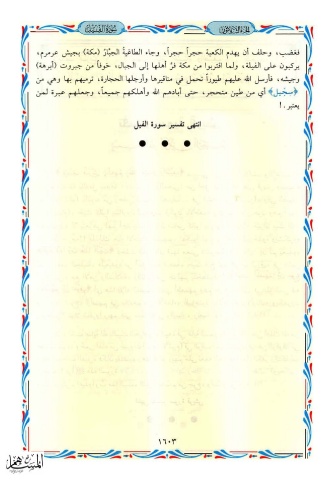 سورة الفيل
فغضب، وحلف أن يهدم الكعبة حجراً حجراً، وجاء الطاغيةُ الجبَّارُ (مكة) بجيش عرمرم،
يركبون على الفيلة، ولما اقتربوا من مكة فرَّ أهلها إلى الجبال، خوفاً من جبروت (أبرهة)
وجيشه، فأرسل الله عليهم طيوراً تحمل في مناقيرها وأرجلها الحجارة، ترميهم بها وهي من
﴿سجّيل﴾ أي من طين متحجر، حتى أبادهم الله وأهلكهم جميعاً، وجعلهم عبرة لمن
يعتبر.!
انتهى تفسير سورة الفيل
١٦٠٣